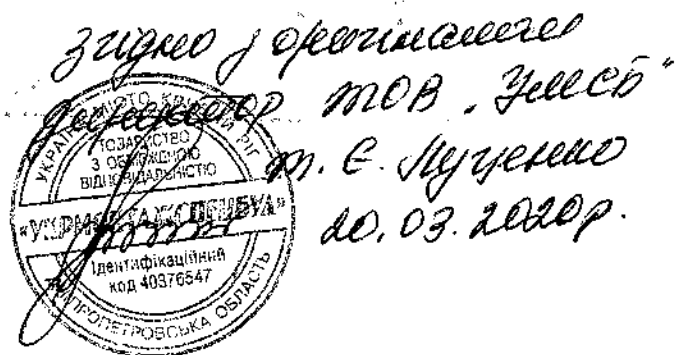 згідно з оригіналом
Директор ТОВ „УМСБ"
Т. Є. Луценко
20.03.2020р.
УКРАЇНА МІСТО КРИВИЙ РІГ
ТОВАРИСТВО
З ОБМЕЖЕНОЮ
ВІДПОВІДАЛЬНІСТЮ
Ідентифікаційний
код 40376547
ДНІПРОПЕТРОВСЬКА ОБЛАСТЬ